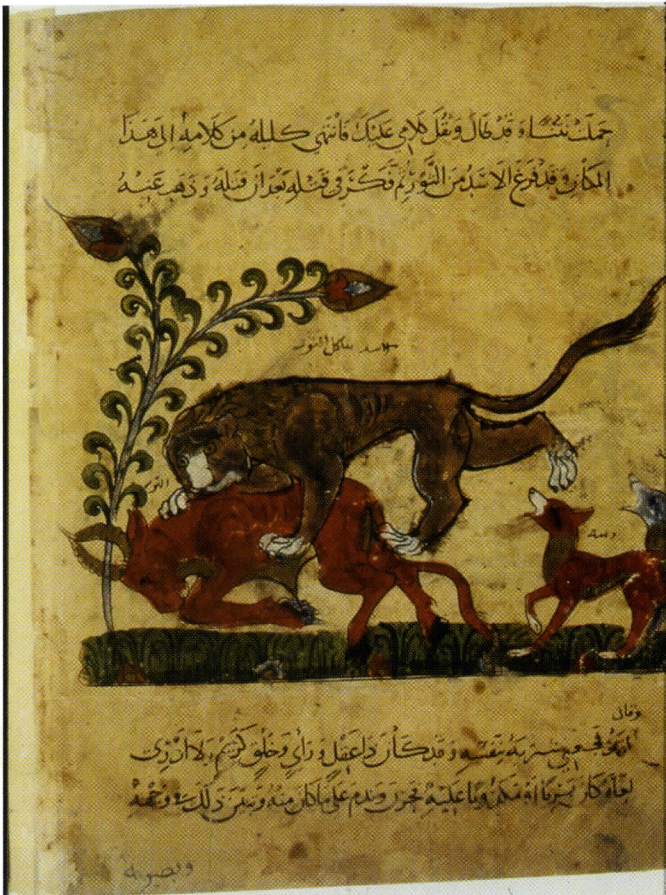 حملت نتنًا وقد طال وثقل كلامي عليك فانتهى كليله من كلامه إلى هذا
المكان وقد فرغ الاسد من الثور ثم فكر في قتله بعد ان قتله وذهب عنه
الاسد ياكل الثور
الثور
دمنة
وقال
شتربه بنفسه وقد كان ذا عقل ورأي وخلق كريم ولا ادري
لعله كان بريا او مكذوبا عليه فحزن وندم على ما كان منه وتبين ذلك في وجهه
وبصر به